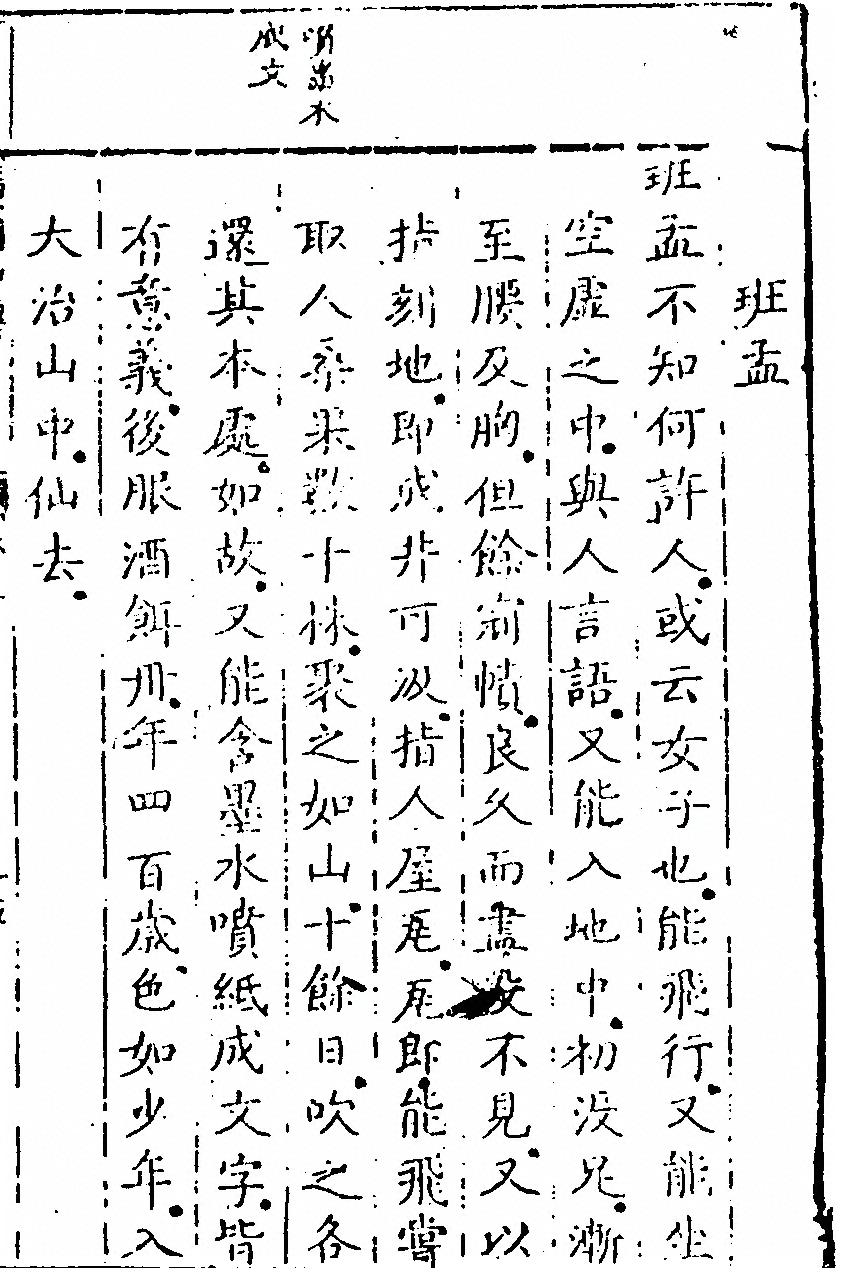 噴墨水
成文
班孟
班孟不知何許人或云女子也能飛行又能坐
空虛之中與人言語又能入地中初沒足漸
至腰及胸但餘冠幘良久而盡沒不見又以
指刻地即成井可汲指人屋瓦瓦即能飛嘗
取人桑果數十株聚之如山十餘日吹之各
還其本處如故又能含墨水噴紙成文字皆
有意義後服酒餌丹年四百歲色如少年入
大治山中仙去